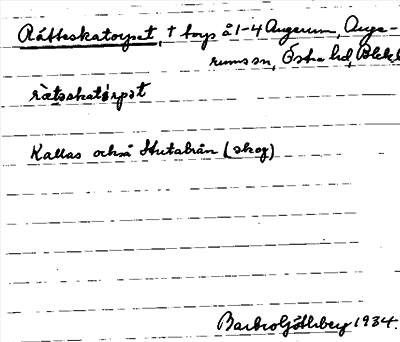 Råtteskatorpet, † torp å 1-4 Augerum, Auge-
rums sn, Östra hd, Blek
rätsskatórpst
Kallas också Hutabrån (skog)
Barbro Götlsberg 1934.